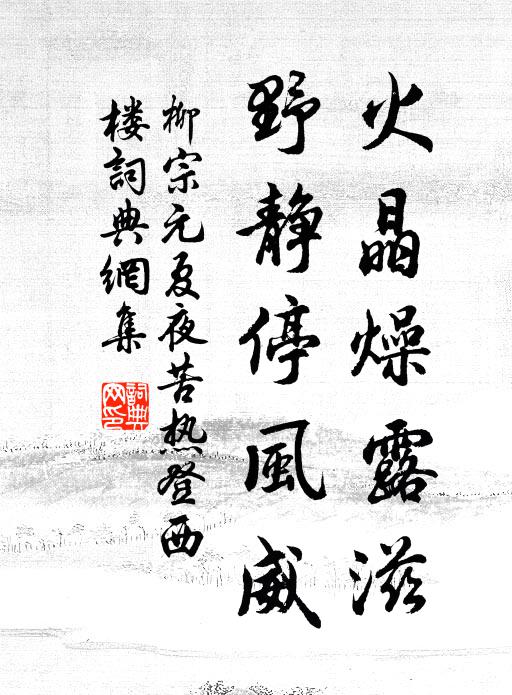 火晶燥露滋
野静停風威
柳宗元夏夜苦热登西
楼詞典網集
詞典
网印